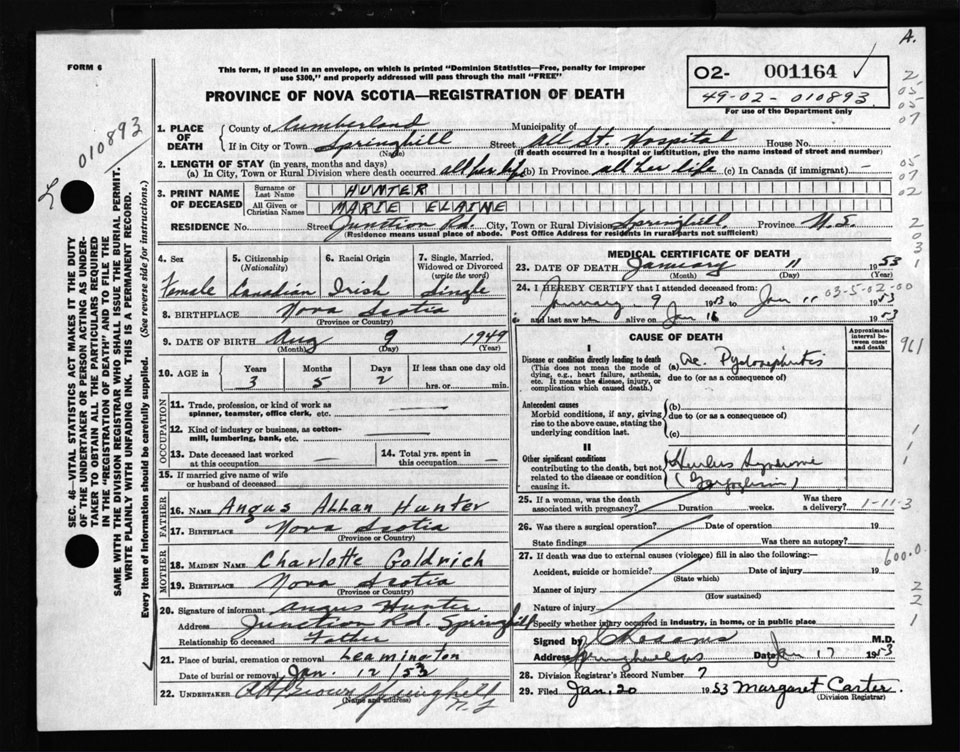 A.
FORM 6
This form, if placed in an envelope, on which is printed "Dominion Statistics—Free, penalty for improper
use $300," and properly addressed will pass through the mail "FREE"
PROVINCE OF NOVA SCOTIA—REGISTRATION OF DEATH
O2- 001164
49-02-010893
For use of the Department only
010893
1. PLACE OF DEATH
County of Cumberland Municipality of
If in City, or Town Springhill Street All St. Hospital House No.
(Name) (If death occurred in a hospital or institution, give the name instead of street and number)
2. LENGTH OF STAY (in years, months and days)
(a) In City, Town or Rural Division where death occurred all her life (b) In Province all her life (c) In Canada (if immigrant)
3. PRINT NAME OF DECEASED
Surname or Last Name HUNTER
All Given or Christian Names MARIE ELAINE
RESIDENCE No. Street Junction Rd. City, Town or Rural Division Springhill, Province N.S.
(Residence means usual place of abode. Post Office Address for residents in rural parts not sufficient)
4. Sex
Female
5. Citizenship (Nationality)
Canadian
6. Racial Origin
Irish
7. Single, Married, Widowed or Divorced (write the word)
Single
8. BIRTHPLACE Nova Scotia
(Province or Country)
9. DATE OF BIRTH Aug 9 1949
(Month) (Day) (Year)
10. AGE in
Years 3
Months 5
Days 2
If less than one day old
hrs. or min.
OCCUPATION
11. Trade, profession, or kind of work as
spinner, teamster, office clerk, etc.
12. Kind of industry or business, as cotton-
mill, lumbering, bank, etc.
13. Date deceased last worked
at this occupation
14. Total yrs. spent in
this occupation
15. If married give name of wife
or husband of deceased
FATHER
16. NAME Angus Allan Hunter
17. BIRTHPLACE Nova Scotia
(Province or Country)
MOTHER
18. MAIDEN NAME Charlotte Goldrich
19. BIRTHPLACE Nova Scotia
(Province or Country)
20. Signature of informant Angus Hunter
Address Junction Rd. Springhill
Relationship to deceased Father
21. Place of burial, cremation or removal Leamington
Date of burial or removal Jan. 12/53
22. UNDERTAKER Springhill
(Name and address) N.S.
MEDICAL CERTIFICATE OF DEATH
23. DATE OF DEATH January 11 1953
(Month) (Day)
24. I HEREBY CERTIFY that I attended deceased from:
January 9 1953 to Jan 11 1953
03-5-02-00
and last saw her alive on Jan 1953
CAUSE OF DEATH
Approximate interval between onset and death
I
Disease or condition directly leading to death
(This does not mean the mode of
dying, e.g., heart failure, asthenia,
etc. It means the disease, injury, or
complication which caused death.)
(a) Ac. Pyelonephritis
due to (or as a consequence of)
Antecedent causes
Morbid conditions, if any, giving
rise to the above cause, stating the
underlying condition last.
(b)
due to (or as a consequence of)
(c)
II
Other significant conditions
contributing to the death, but not
related to the disease or condition
causing it.
Hurlers Syndrome
(Gargoylism)
25. If a woman, was the death
associated with pregnancy? Duration weeks. Was there a delivery?
1-11-3
26. Was there a surgical operation? Date of operation 19
State findings Was there an autopsy?
27. If death was due to external causes (violence) fill in also the following:
600.0
Accident, suicide or homicide? Date of injury 19
(State which)
Manner of injury
(How sustained)
Nature of injury
Specify whether injury occurred in industry, in home, or in public place
Signed by M.D.
Address Springhill NS Date Jan 17 1953
28. Division Registrar's Record Number 7
29. Filed Jan. 20 1953 Margaret Carter.
(Division Registrar)
SEC. 46 VITAL STATISTICS ACT MAKES IT THE DUTY
OF THE UNDERTAKER OR PERSON ACTING AS UNDER-
TAKER TO OBTAIN ALL THE PARTICULARS REQUIRED
IN THE "REGISTRATION OF DEATH" AND TO FILE THE
SAME WITH THE DIVISION REGISTRAR WHO SHALL ISSUE THE BURIAL PERMIT.
WRITE PLAINLY WITH UNFADING INK. THIS IS A PERMANENT RECORD.
Every item of information should be carefully supplied. (See reverse side for instructions.)
2
05
05
07
05
07
02
2
0
3
1
961
1
1
1
2
2
1